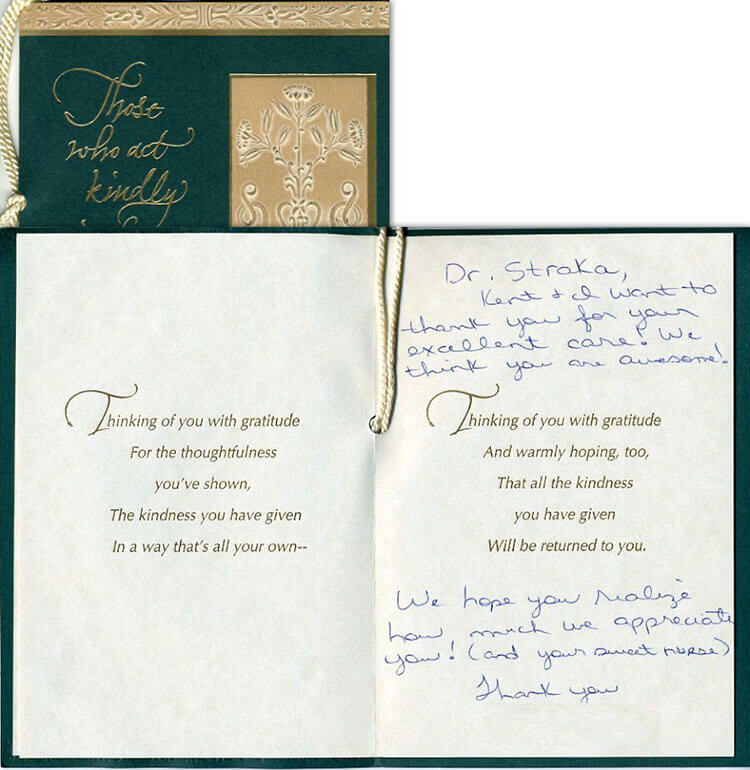 Those
who act
kindly
Thinking of you with gratitude
For the thoughtfulness
you've shown,
The kindness you have given
In a way that's all your own--
Dr. Straka,
Kent & I want to
thank you for your
excellent care. We
think you are awesome!
Thinking of you with gratitude
And warmly hoping, too,
That all the kindness
you have given
Will be returned to you.
We hope you realize
how much we appreciate
you! (and your sweet nurse)
Thank you